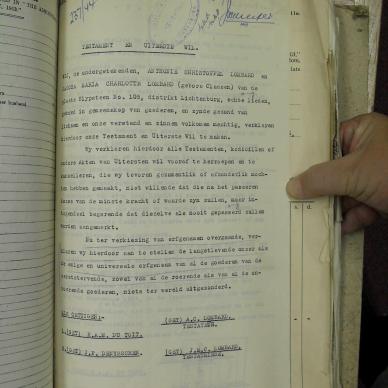 257/44
TESTAMENT EN UITERSTE WIL.
ONS, de ondergetekenden, ANTHONIE CHRISTOFFEL LOMBARD en
MARIA CHARLOTTE LOMBARD (gebore Classen) van de
plaats Slypsteen No. 106, distrikt Lichtenburg, echte lieden,
gehuwd in gemeenschap van goederen, en zynde gezond van
lichaam en onze verstand en zinnen volkomen machtig, verklaren
hierdoor onze Testament en Uiterste Wil te maken.
Wy verklaren hierdoor alle Testamenten, kodicillen of
andere Akten van Uitersten wil vooraf te herroepen en te
annuleren, die wy tevoren gezamentlik of afzonderlik moch-
ten hebben gemaakt, niet willende dat die na het passeren
dezes van de minste kracht of waarde zyn zullen, maar in-
tegendeel begerende dat dezelve als nooit gepasseerd zullen
worden aangemerkt.
Nu ter verkiezing van erfgenamen overgaande, ver-
klaren wy hierdoor aan te stellen de langstlevende onzer als
de enige en universele erfgenaam van al de goederen van de
eerststervende, zowel van al de roerende als van al de on-
roerende goederen, niets ter wereld uitgezonderd.
ALS GETUIGEN:-
(GET) A.C. LOMBARD.
TESTATEUR.
1.(GET) E.A.M. DU TOIT.
(GET) J.M.C. LOMBARD.
TESTATRICE.